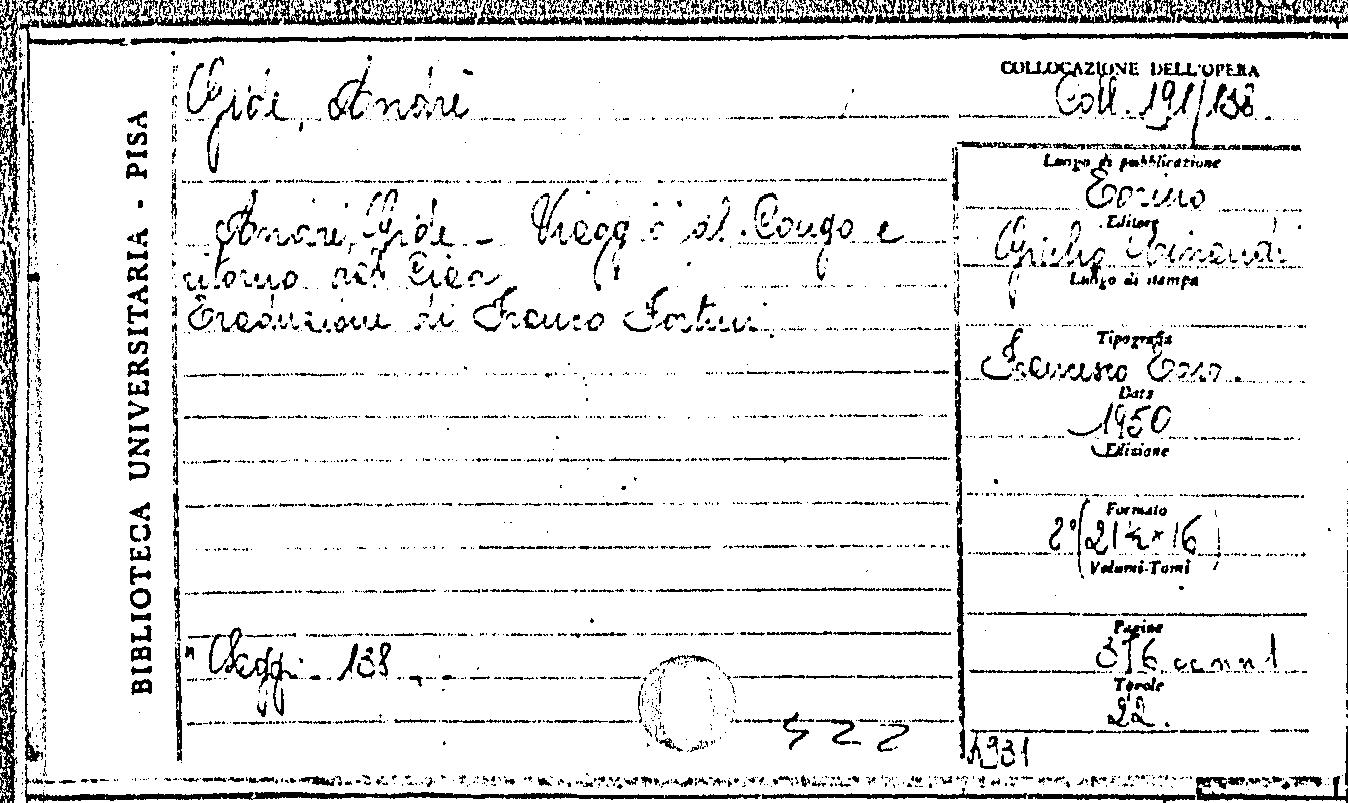 BIBLIOTECA UNIVERSITARIA - PISA
Gide, André
André Gide - Viaggio al Congo e
ritorno dal Ciad
Traduzione di Franco Fortini.
"Saggi. 138
522
COLLOCAZIONE DELL'OPERA
Coll. 191/138.
Luogo di pubblicazione
Torino
Editore
Giulio Einaudi
Luogo di stampa
Tipografia
Francesco Toso.
Data
1950
Edizione
Formato
8° (21½ × 16)
Volumi-Tomi
Pagine
376
Tavole
22.